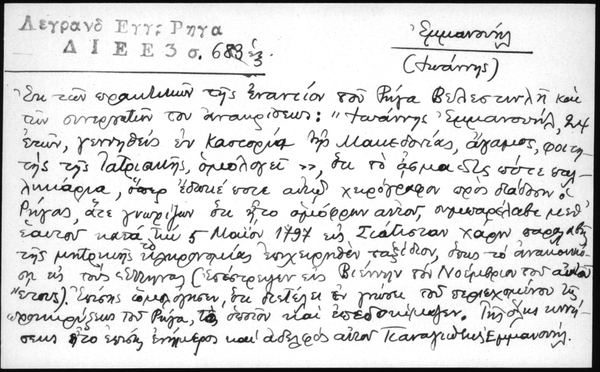 Λεγρανδ Εγγ: Ρηγα
ΔΙΕΕ 3 σ. 683 ἑξ.
Ἐμμανουήλ
(Ἰωάννης)
Ἐκ τῶν πρακτικῶν τῆς ἐναντίον τοῦ Ρήγα Βελεστινλῆ καὶ
τῶν συνεργατῶν του ἀνακρίσεως: "Ἰωάννης Ἐμμανουήλ, 24
ἐτῶν, γεννηθεὶς ἐν Καστορίᾳ τῆς Μακεδονίας, ἄγαμος, φοιτη-
τὴς τῆς Ἰατρικῆς, ὁμολογεῖ», ὅτι τὸ ᾆσμα «Ὣς πότε παλ-
ληκάρια, ὅπερ ἔδωκέ ποτε αὐτῷ χειρόγραφον πρὸς διάδοσιν ὁ
Ρήγας, ἅτε γνωρίζων ὅτι ἦτο ὁμόφρων αὐτοῦ, συμπαρέλαβε μεθ'
ἑαυτοῦ κατὰ τὴν 5 Μαΐου 1797 εἰς Σιάτισταν χάριν παραλαβῆς
τῆς μητρικῆς κληρονομίας ἐπιχειρηθὲν ταξίδιον, ὅπως τὸ ἀνακοινώ-
σῃ εἰς τοὺς Ἕλληνας (ἐπέστρεψεν εἰς Βιέννην τὸν Νοέμβριον τοῦ αὐτοῦ
ἔτους). Ἐπίσης ὡμολόγησεν, ὅτι διετέλει ἐν γνώσει τοῦ περιεχομένου τῆς
προκηρύξεως τοῦ Ρήγα, τὸ ὁποῖον καὶ ἐπεδοκίμαζεν. Τῆς ὅλης κινή-
σεως ἦτο ἐπίσης ἐνήμερος καὶ ἀδελφὸς αὐτοῦ Παναγιώτης Ἐμμανουήλ.